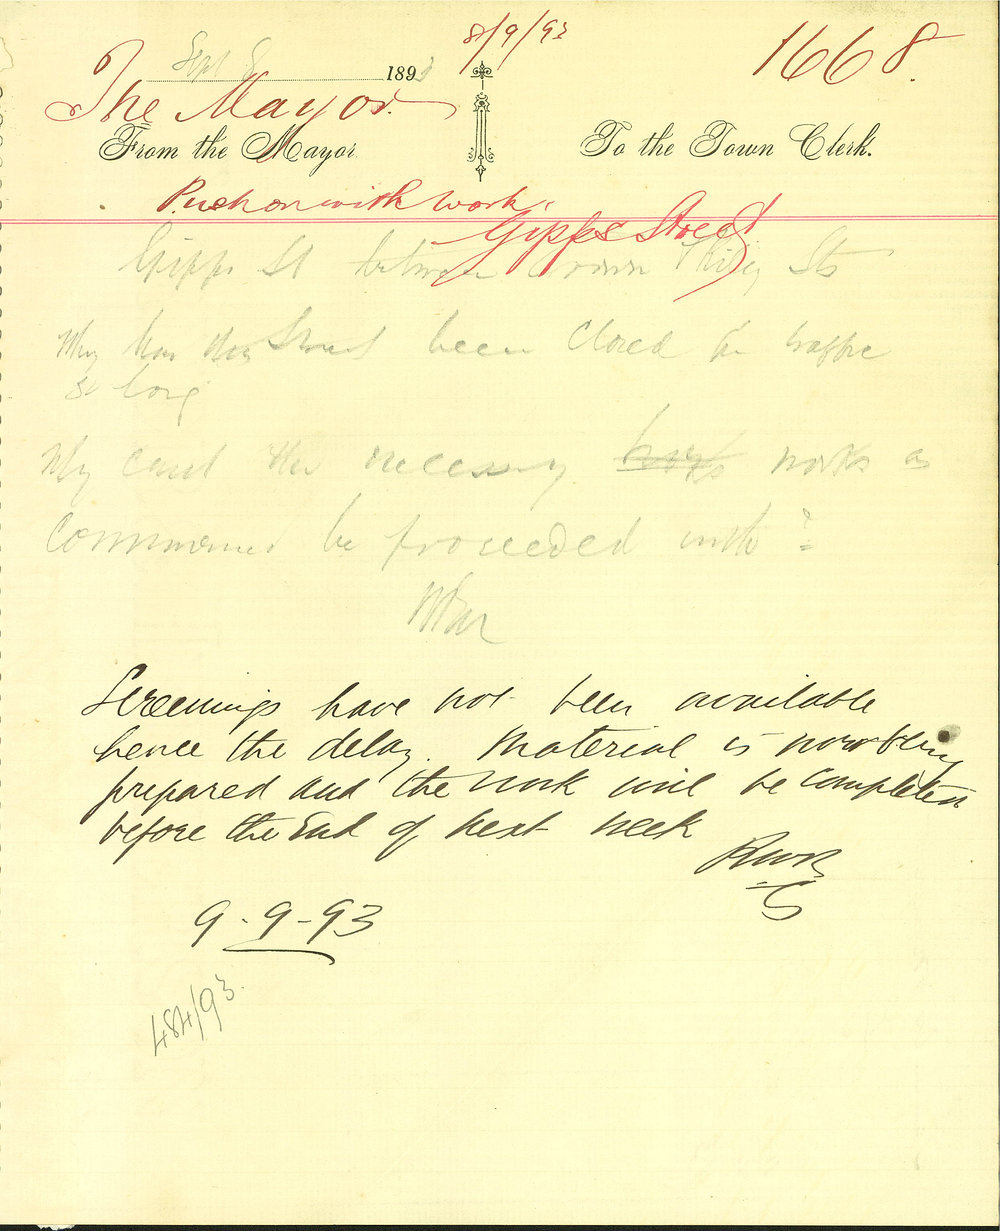 Sept 8 1893
8/9/93
1668.
The Mayor.
From the Mayor
To the Town Clerk.
Push on with work.
Gipps Street
Gipps St between Crown & Riley Sts
Why has this Street been closed for traffic
so long
Why cant the necessary works as
commenced be proceeded with?
Screenings have not been available
hence the delay. Material is now being
prepared and the work will be completed
before the End of next week
9-9-93
484/93.